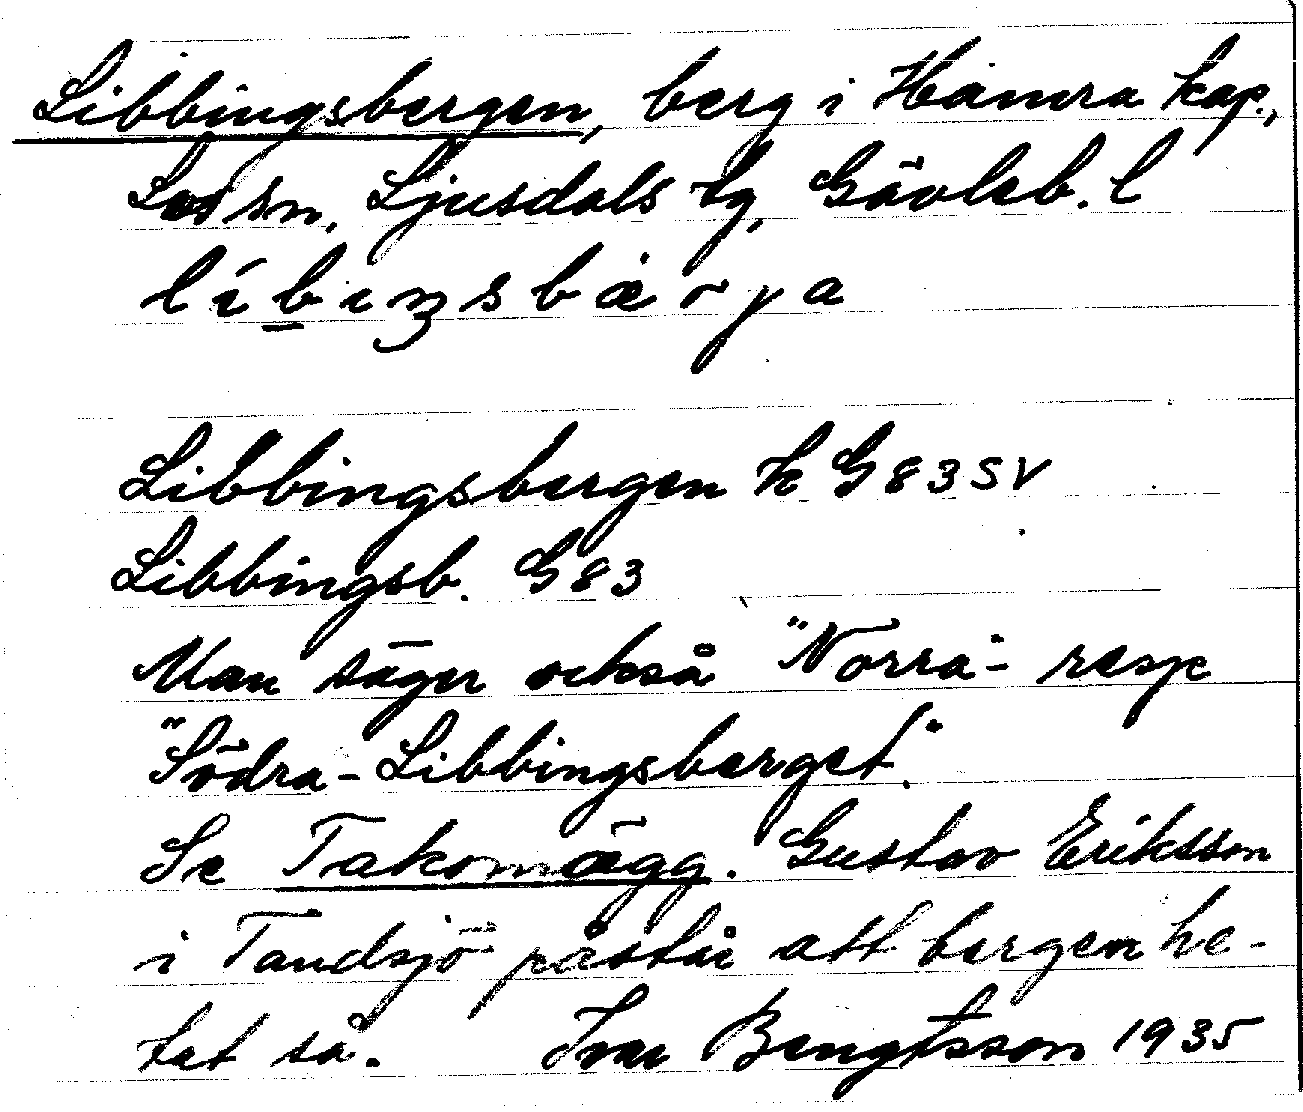 Libbingsbergen, berg i Hamra kap.,
Los sn, Ljusdals tg, Gävleb. l
líbiŋsbærya
Libbingsbergen k G83SV
Libbingsb. G83
Man säger också "Norra- resp
"Södra-Libbingsberget".
Se Takomägg. Gustav Eriksson
i Tandsjö påstår att bergen he-
tat så. Ivar Bengtsson 1935